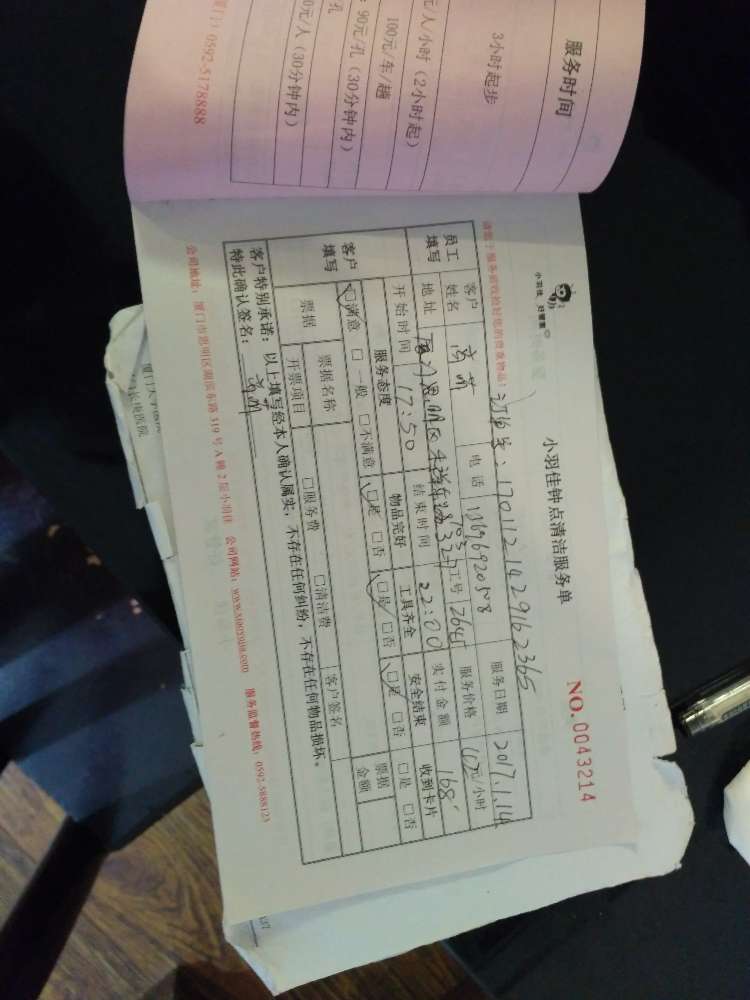 服务时间
3小时起步
元/人/小时（2小时起）
100元/车/趟
：90元/孔（30分钟内）
孔
0元/人（30分钟内）
厦门：0592-5178888
小羽佳 好帮家
小羽佳钟点清洁服务单
NO.0043214
请您于服务前收拾好您的贵重物品！
订单号：1701121429162365
员工填写
客户姓名
电话
13696920158
服务日期
2017.1.14
地址
厦门思明区
工号
2645
服务价格
元/小时
开始时间
17:50
结束时间
22:00
实付金额
168
客户填写
服务态度
物品完好
工具齐全
安全结束
收到卡片
☑满意 □一般 □不满意
☑是 □否
☑是 □否
☑是 □否
□是 □否
票据
票据名称
客户签名
票据金额
开票项目
□服务费 □清洁费
客户特别承诺：以上填写经本人确认属实，不存在任何纠纷，不存在任何物品损坏。
特此确认签名：
公司地址：厦门市思明区湖滨东路319号A幢2层小羽佳 公司网站：www.xiaoyujia.com 服务监督热线：0592-5888123
厦门大学医院
长庚医院